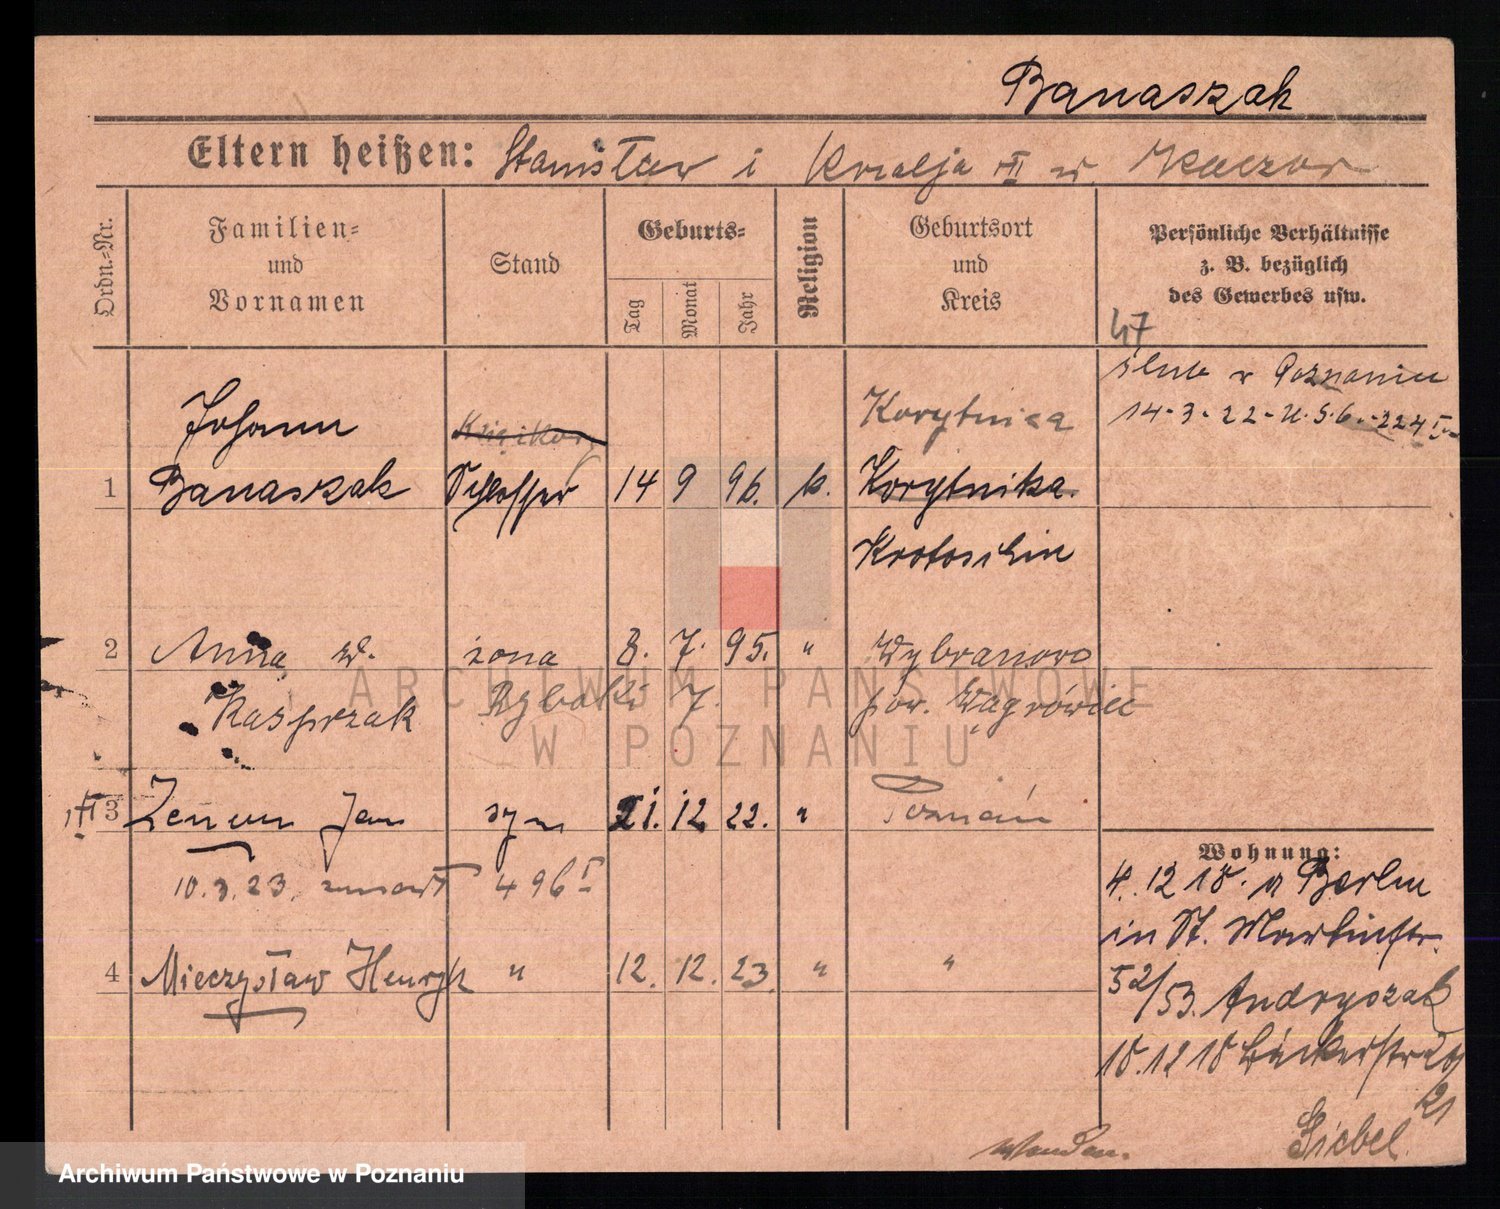 Banaszak
Eltern heißen: Stanisław i w Kaczor
Ordn.-Nr.
Familien-
und
Vornamen
Stand
Geburts-
Tag
Monat
Jahr
Religion
Geburtsort
und
Kreis
Persönliche Verhältnisse
z. B. bezüglich
des Gewerbes usw.
47
ślub w Poznaniu
14-3-22-U.S.
Johann
Korytnica
1 Banaszak Schlosser 14 9 96. k. Korytnika.
Krotoschin
2 Anna żona 8. 7. 95. " Wybranowo
Kasprzak 7. pow. Wągrówiec
3 Zenon Jan syn 21. 12 22. " Poznań
10.3.23. zmarł 496 I
4 Mieczysław Henryk " 12. 12. 23. " "
Wohnung:
4. 12 18. a Berlin
in St. Martinstr.
52/53. Andryszak
18.12 18 Bäckerstr
21
Siebel.
ARCHIWUM PAŃSTWOWE
W POZNANIU
Archiwum Państwowe w Poznaniu